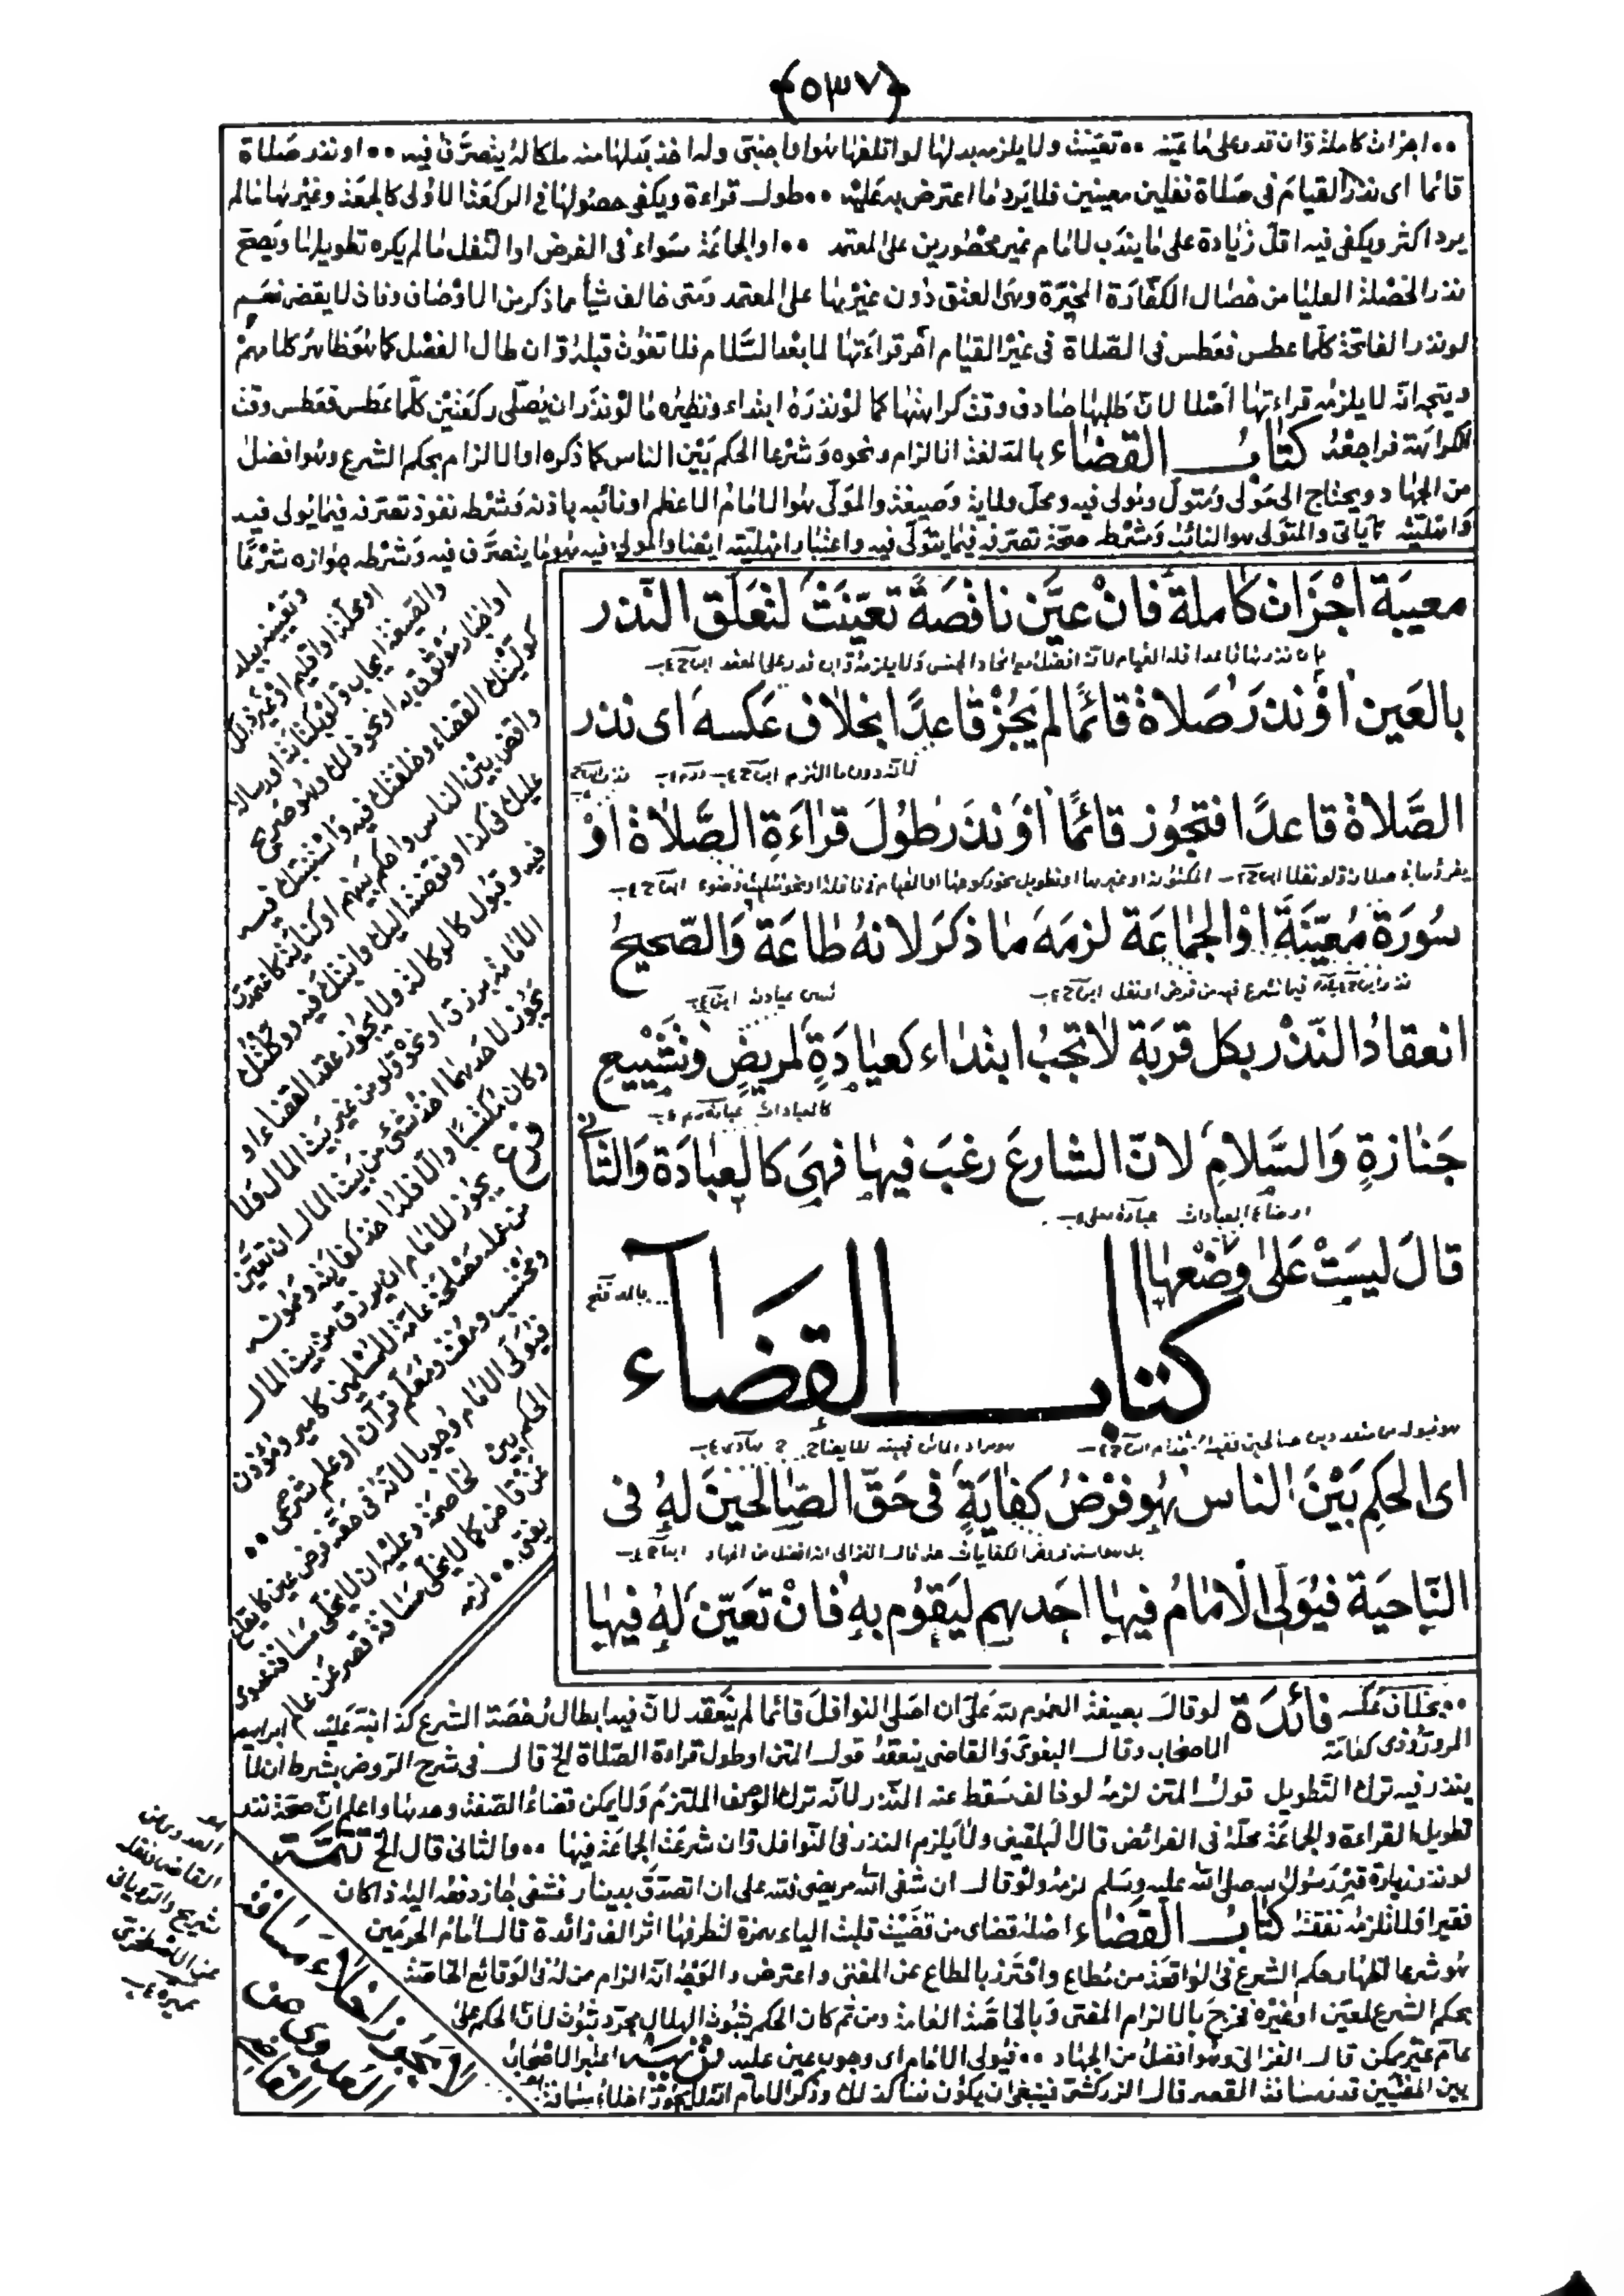 ٥٣٧
٠٠ اجزات كاملة وان قدر على ما عينه ٠٠ تعينت ولا يلزمه بدلها لو اتلفها هو او اجنبى وله اخذ بدلها منه ملكا له يتصرف فيه ٠٠ او نذر صلاة
قائما اى نذر القيام فى صلاة نفلين معينين فلا يرد ما اعترض به عليه ٠٠ طول قراءة ويكفى حصولها فى الركعة الاولى كالجمعة وغيرها ما لم
يرد اكثر ويكفى فيه اقل زيادة على ما يندب لامام غير محصورين على المعتمد ٠٠ او الجماعة سواء فى الفرض او النفل ما لم يكره تطويلها ويصح
نذر الخصلة العليا من خصال الكفارة المخيرة وهى العتق دون غيرها على المعتمد ومتى خالف شيأ مما ذكر من الاوصاف وفات لا يقضى نعم
لو نذر الفاتحة كلما عطس فعطس فى الصلاة فى غير القيام اخر قراءتها لما بعد السلام فلا تفوت قبله وان طال الفصل كما هو ظاهر كلامهم
ويتجه انه لا يلزمه قراءتها اصلا لان طلبها صادف وقت كراهتها كما لو نذره ابتداء ونظيره ما لو نذر ان يصلى ركعتين كلما عطس فعطس وقت
الكراهة فراجعه كتاب القضاء بالمد لغة الالزام ونحوه وشرعا الحكم بين الناس كما ذكره او الالزام بحكم الشرع وهو افضل
من الجهاد ويحتاج الى مولى ومتول ومولى فيه ومحل ولاية وصيغة والمولى هو الامام الاعظم او نائبه باذنه وشرطه نفوذ تصرفه فيما يولى فيه
واهليته كما ياتى والمتولى هو النائب وشرطه صحة تصرفه فيما يتولى فيه واعتبار اهليته ايضا والمولى فيه هو ما يتصرف فيه وشرطه جوازه شرعا
وتعيينه ببلد
او محلة او اقليم او غير ذلك
والصيغة ايجاب ولو بكتابة او رسالة
او اخبار موثوق به او نحو ذلك وهو صريح
كوليتك القضاء وخلفتك فيه واستنبتك فيه
واقض بين الناس واحكم بينهم او كناية كاعتمدت
عليك فى كذا وفوضته اليك وانبتك فيه ووكلتك
فيه وقبول كالوكالة ولا يجوز عقد القضاء او
الامامة برزق او نحوه ولو من غير بيت المال ولا
يجوز لاحدهما اخذ شئ من بيت المال ان تعين
وكان مكتسبا والا فله اخذ كفايته وممونه
فرع يجوز للامام ان يرزق من بيت المال
من عمله مصلحة عامة للمسلمين كامير ومؤذن
ومحتسب ومفت ومعلم قرآن او علم شرعى ٠٠
فيولى الامام وجوبا لانه فى حقه فرض عين كايقاع
الحكم بين الخاصمة وعليه ان لا يخلى مسافة عدوى
عن قاض كما لا يخلى مسافة قصر عن عالم
يفتى ٠٠ لزمه
معيبة اجزات كاملة فان عين ناقصة تعينت لتعلق النذر
بان نذرها قاعدا فله القيام لانه افضل مع اتحاد الجنس ولا يلزمه وان قدر على المعتمد
بالعين او نذر صلاة قائما لم يجز قاعدا بخلاف عكسه اى نذر
لانه دون ما التزم
الصلاة قاعدا فتجوز قائما او نذر طول قراءة الصلاة او
سورة معينة او الجماعة لزمه ما ذكر لانه طاعة والصحيح
فيما تشرع فيه من فرض او نفل
انعقاد النذر بكل قربة لا تجب ابتداء كعيادة لمريض وتشييع
كالعبادات
جنازة والسلام لان الشارع رغب فيها فهى كالعبادة والثانى
قال ليست على وضعها
بالمد
كتاب القضآء
اى الحكم بين الناس هو فرض كفاية فى حق الصالحين له فى
بل هو اسنى فروض الكفايات حتى قال الغزالى انه افضل من الجهاد
الناحية فيولى الامام فيها احدهم ليقوم به فان تعين له فيها
٠٠ بخلاف عكسه فائدة لو قال بصيغة العموم لله على ان اصلى النوافل قائما لم ينعقد لان فيه ابطال رخصة الشرع كذا نبه عليه ابراهيم
المروروذى كفاية الاصحاب وقال البغوى والقاضى ينعقد قول المتن او طول قراءة الصلاة الخ قال فى شرح الروض بشرط ان لا
يندر فيه ترك التطويل قول المتن لزمه لو خالف سقط عنه النذر لانه ترك الوصف الملتزم ولا يمكن قضاء الصفة وحدها واعلم ان صحة نذر
تطويل القراءة والجماعة محله فى الفرائض قال البلقينى ولا يلزم النذر فى النوافل وان شرعت الجماعة فيها ٠٠ والثانى قال الخ تتمة
لو نذر زيارة قبر رسول الله صلى الله عليه وسلم لزمه ولو قال ان شفى الله مريضى لله على ان اتصدق بدينار فشفى جاز دفعه اليه اذا كان
فقيرا فلا تلزمه نفقته كتاب القضاء اصله قضاى من قضيت قلبت الياء همزة لتطرفها اثر الف زائدة قال امام الحرمين
هو شرعا اظهار حكم الشرع فى الواقعة من مطاع واحترز بالمطاع عن المفتى واعترض والوجه انه الزام من له فى الوقائع الخاصة
بحكم الشرع لمعين او غيره فخرج بالالزام المفتى وبالخاصة العامة ومن ثم كان الحكم بثبوت الهلال مجرد ثبوت لان الحكم على
عام غير ممكن قال الغزالى وهو افضل من الجهاد ٠٠ فيولى الامام اى وجوب عين عليه تنبيه اعتبر الاصحاب
بين المفتيين قدر مسافة القصر قال الزركشى فينبغى ان يكون هنا كذلك وذكر الامام انه لا يجوز اخلاء مسافة
العدوى عن
القاضى ونقله
شريح والرويانى
عن الاصطخرى
عميره
لا يجوز اخلاء مسافة
العدوى عن
القاضى